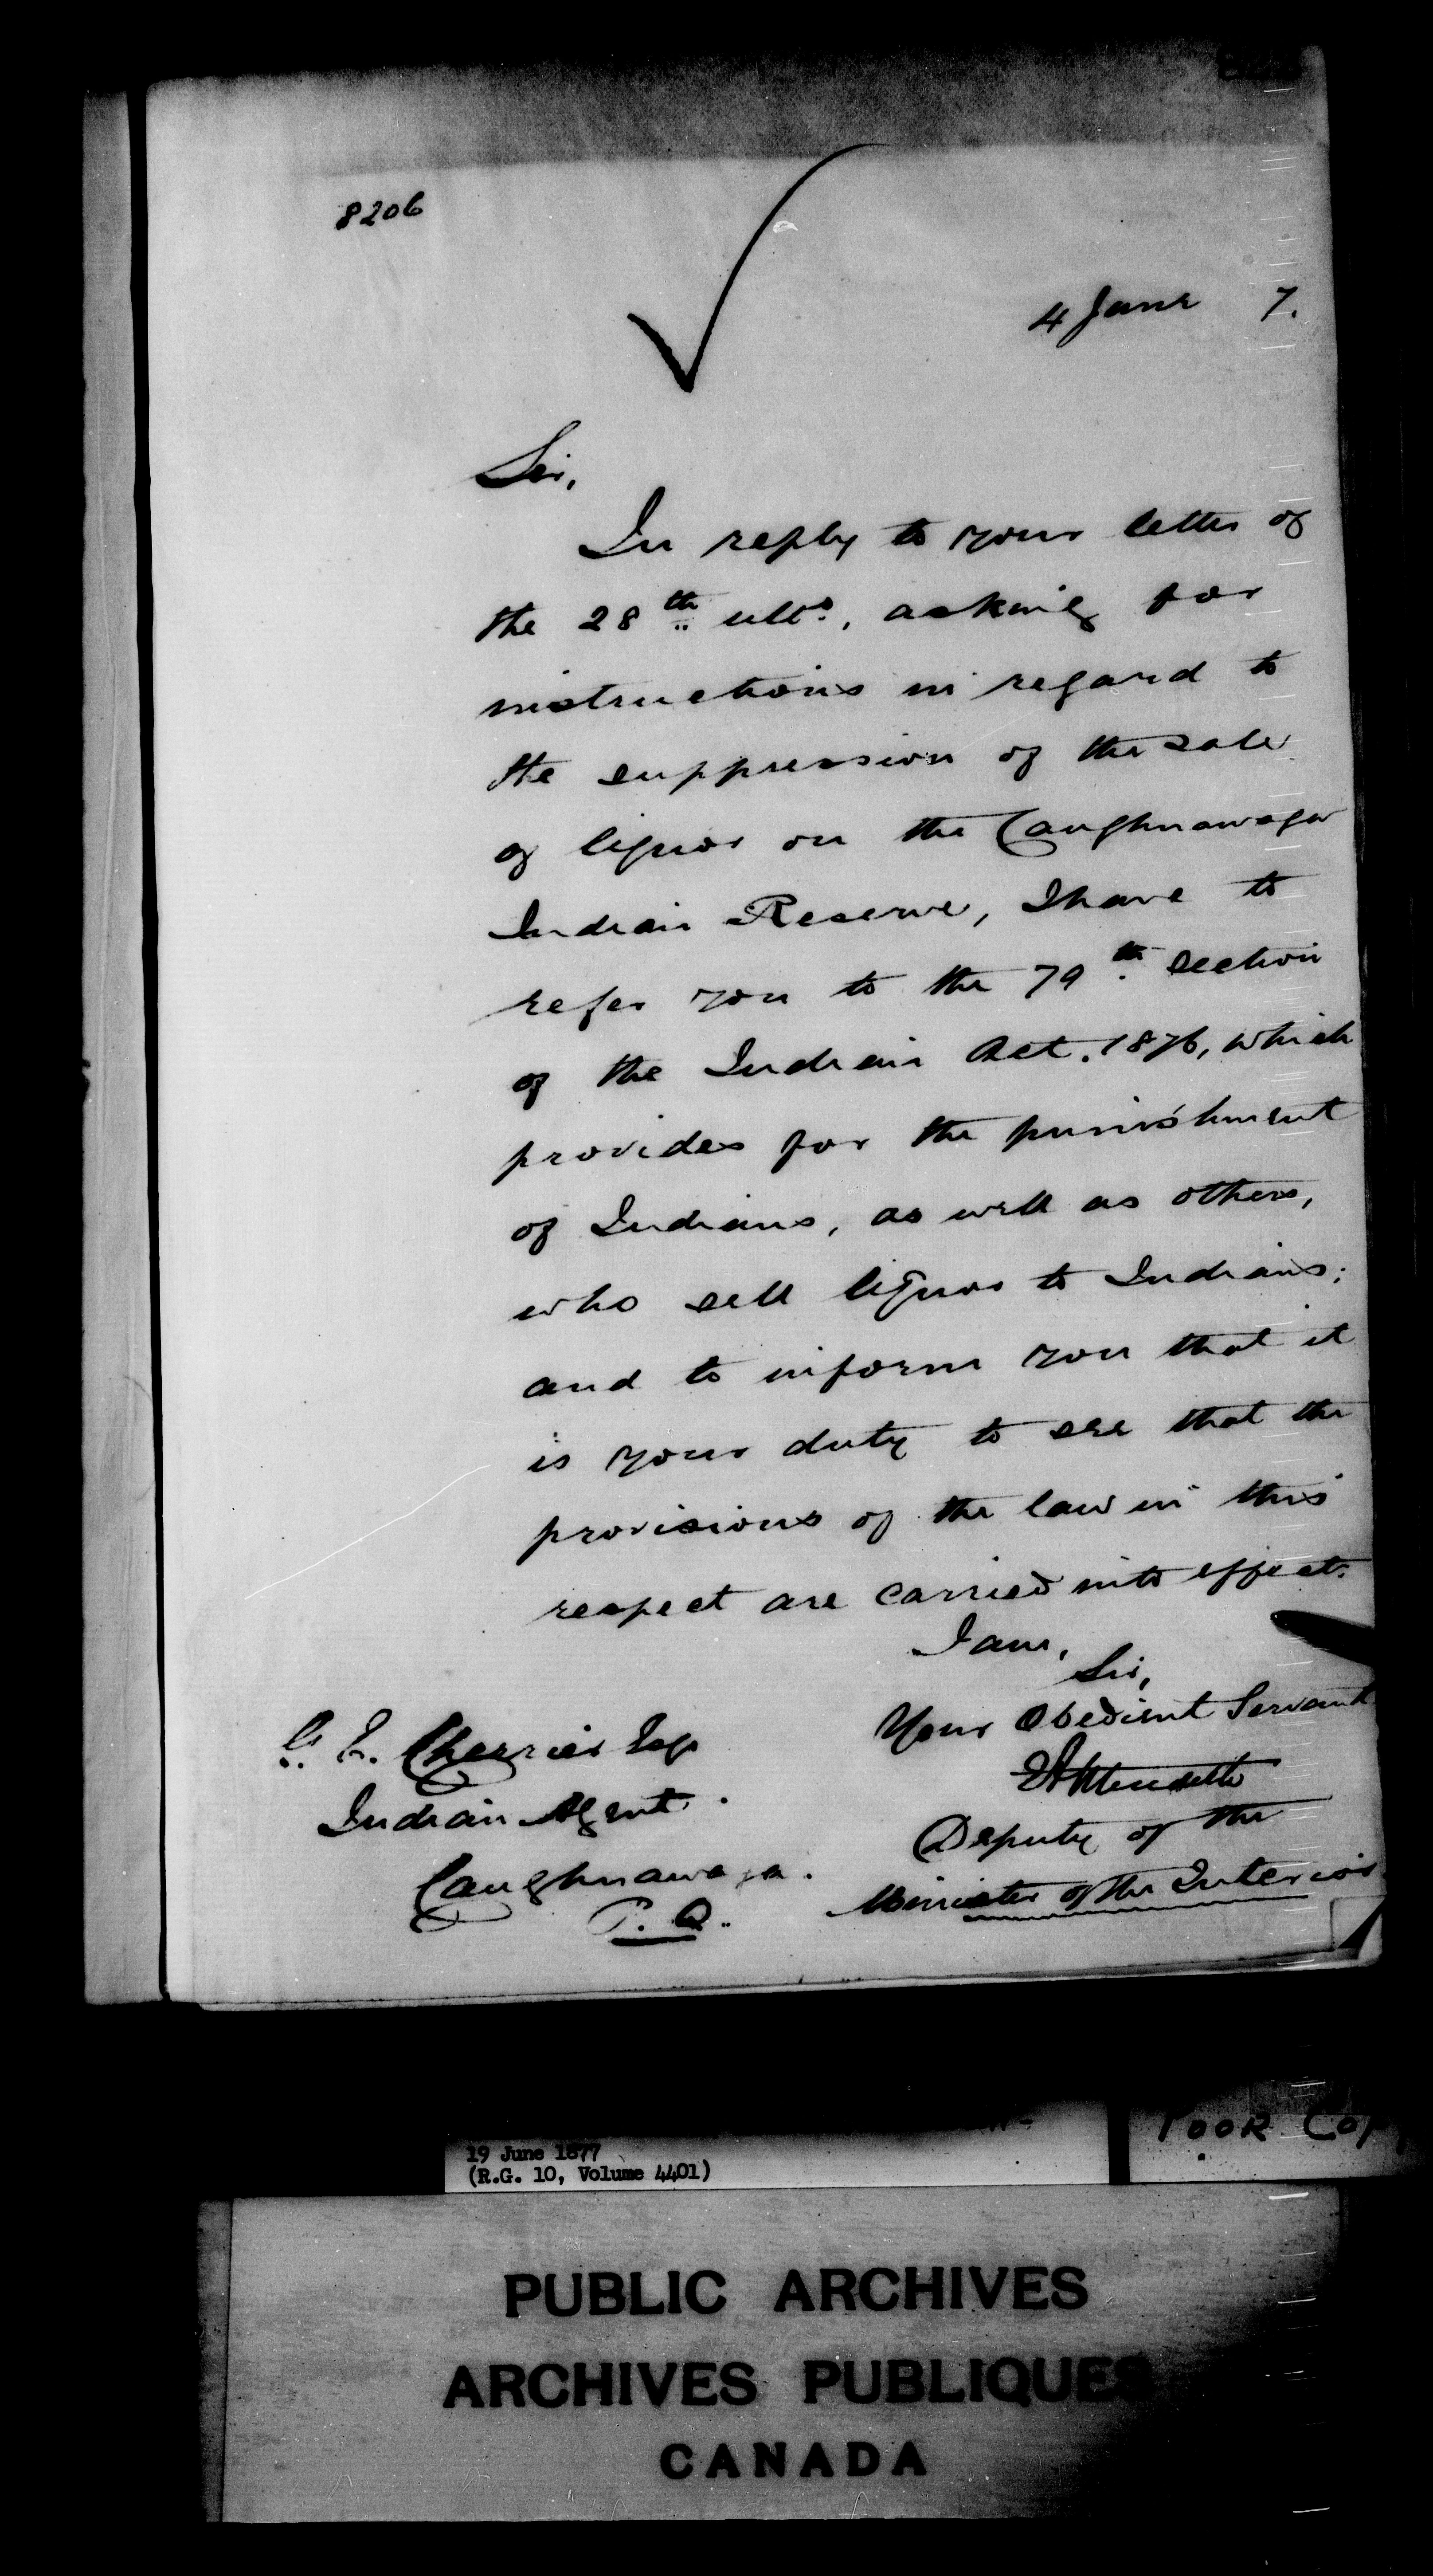 8206
4 June 7.
Sir,
In reply to your letter of
the 28th ulto, asking for
instructions in regard to
the suppression of the sale
of liquor on the Caughnawaga
Indian Reserve, I have to
refer you to the 79th section
of the Indian Act. 1876, which
provides for the punishment
of Indians, as well as others,
who sell liquor to Indians;
and to inform you that it
is your duty to see that the
provisions of the law in this
respect are carried into effect.
I am,
Sir,
Your Obedient Servant
EAMeredith
Deputy of the
Minister of the Interior
G. E. Cherrier Esq
Indian Agent.
Caughnawaga.
P. Q.
POOR COP
19 June 1877
(R.G. 10, Volume 4401)
PUBLIC ARCHIVES
ARCHIVES PUBLIQUES
CANADA